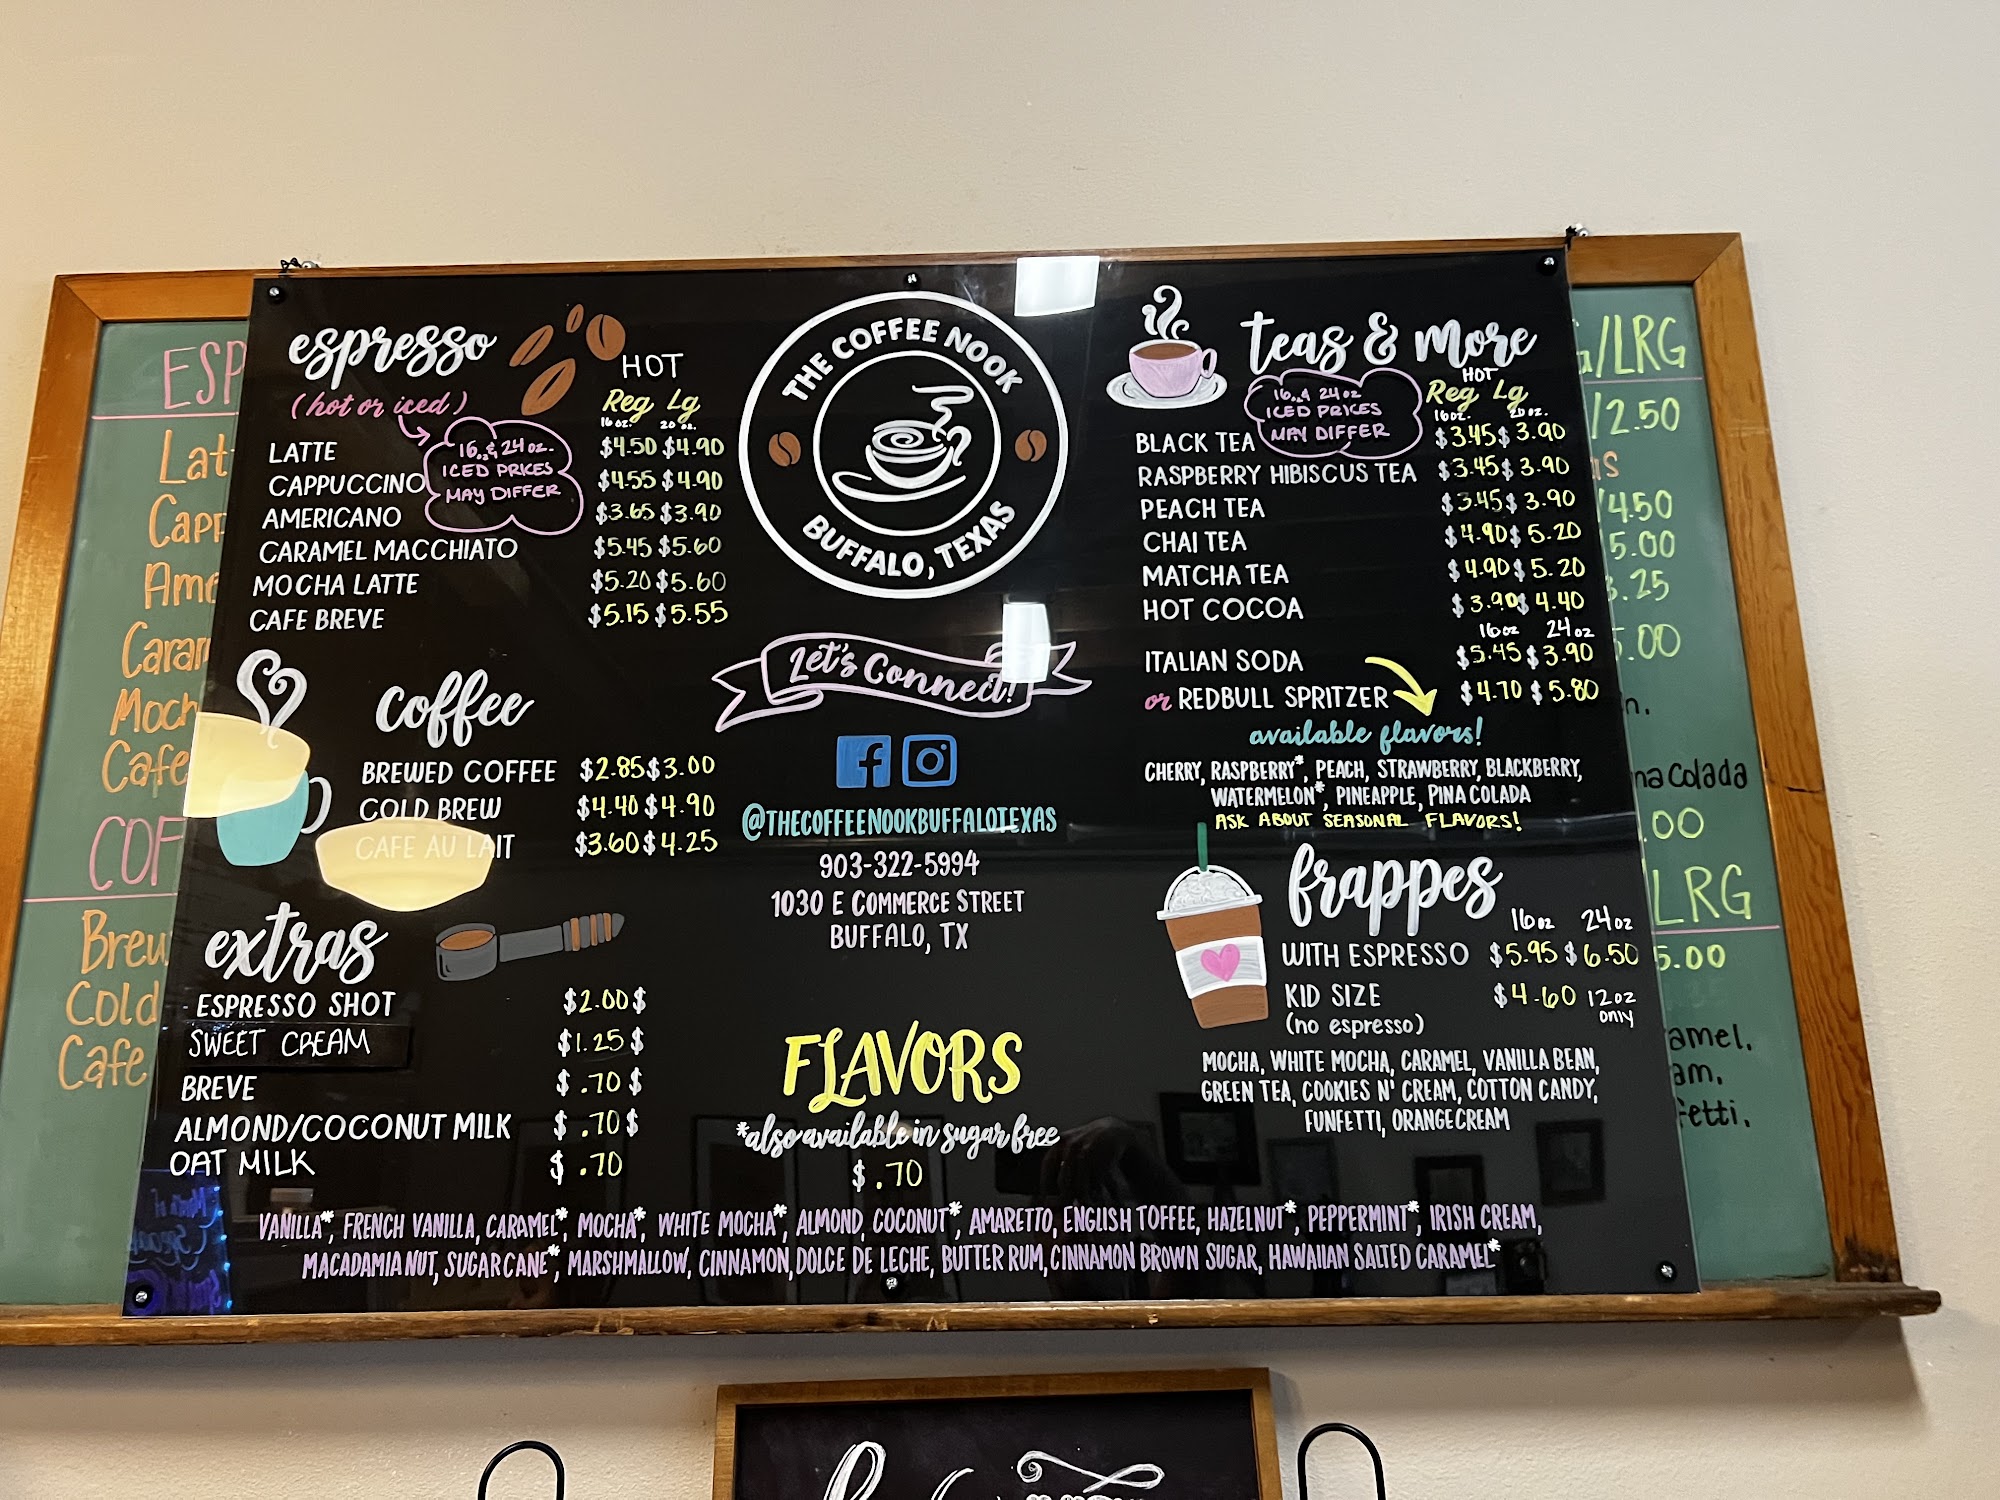 espresso
HOT
(hot or iced)
Reg Lg
16oz. 20 oz.
16oz. & 24oz.
ICED PRICES
MAY DIFFER
LATTE $4.50 $4.90
CAPPUCCINO $4.55 $4.90
AMERICANO $3.65 $3.90
CARAMEL MACCHIATO $5.45 $5.60
MOCHA LATTE $5.20 $5.60
CAFE BREVE $5.15 $5.55
coffee
BREWED COFFEE $2.85 $3.00
COLD BREW $4.40 $4.90
CAFE AU LAIT $3.60 $4.25
extras
- ESPRESSO SHOT $2.00 $
SWEET CREAM $1.25 $
BREVE $ .70 $
ALMOND/COCONUT MILK $ .70 $
OAT MILK $ .70
THE COFFEE NOOK
BUFFALO, TEXAS
Let's Connect!
f
@THECOFFEENOOKBUFFALOTEXAS
903-322-5994
1030 E COMMERCE STREET
BUFFALO, TX
FLAVORS
*also available in sugar free
$ .70
VANILLA*, FRENCH VANILLA, CARAMEL*, MOCHA*, WHITE MOCHA*, ALMOND, COCONUT*, AMARETTO, ENGLISH TOFFEE, HAZELNUT*, PEPPERMINT*, IRISH CREAM,
MACADAMIA NUT, SUGAR CANE*, MARSHMALLOW, CINNAMON, DOLCE DE LECHE, BUTTER RUM, CINNAMON BROWN SUGAR, HAWAIIAN SALTED CARAMEL*
teas & more
HOT
Reg Lg
16oz. 20 oz.
16oz. & 24oz
ICED PRICES
MAY DIFFER
BLACK TEA $3.45 $3.90
RASPBERRY HIBISCUS TEA $3.45 $3.90
PEACH TEA $3.45 $3.90
CHAI TEA $4.90 $5.20
MATCHA TEA $4.90 $5.20
HOT COCOA $3.90 $4.40
16oz 24oz
ITALIAN SODA $5.45 $3.90
or REDBULL SPRITZER $4.70 $5.80
available flavors!
CHERRY, RASPBERRY*, PEACH, STRAWBERRY, BLACKBERRY,
WATERMELON*, PINEAPPLE, PINA COLADA
ASK ABOUT SEASONAL FLAVORS!
frappes
16oz 24oz
WITH ESPRESSO $5.95 $6.50
KID SIZE $4.60 12oz
(no espresso) only
MOCHA, WHITE MOCHA, CARAMEL, VANILLA BEAN,
GREEN TEA, COOKIES N' CREAM, COTTON CANDY,
FUNFETTI, ORANGE CREAM
ESP
Lat
Capp
Ame
Caram
Moch
Cafe
COF
Brew
Cold
Cafe
G/LRG
/2.50
as
/4.50
5.00
3.25
5.00
n.
na Colada
.00
/LRG
5.00
amel.
am.
fetti.